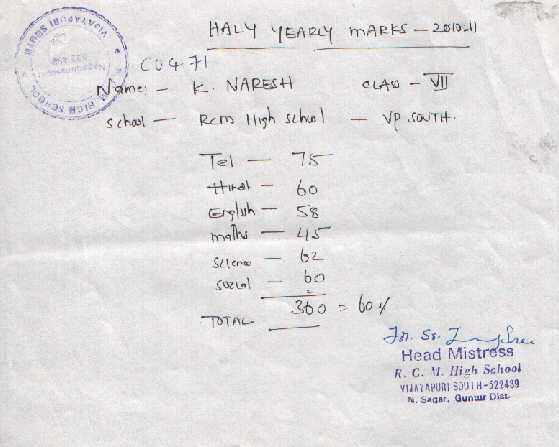 HALY YEARLY MARKS - 2010-11
C0471
Name:- K. NARESH CLASS - VII
School - Rcm High School - VP. SOUTH.
Tel - 75
Hindi - 60
English - 58
maths - 45
Science - 62
Social - 60
TOTAL 360 = 60%
For Sr.
Head Mistress
R. C. M. High School
VIJAYAPURI SOUTH-522439
N. Sagar, Guntur Dist.
VIJAYAPURI SOUTH
HIGH SCHOOL